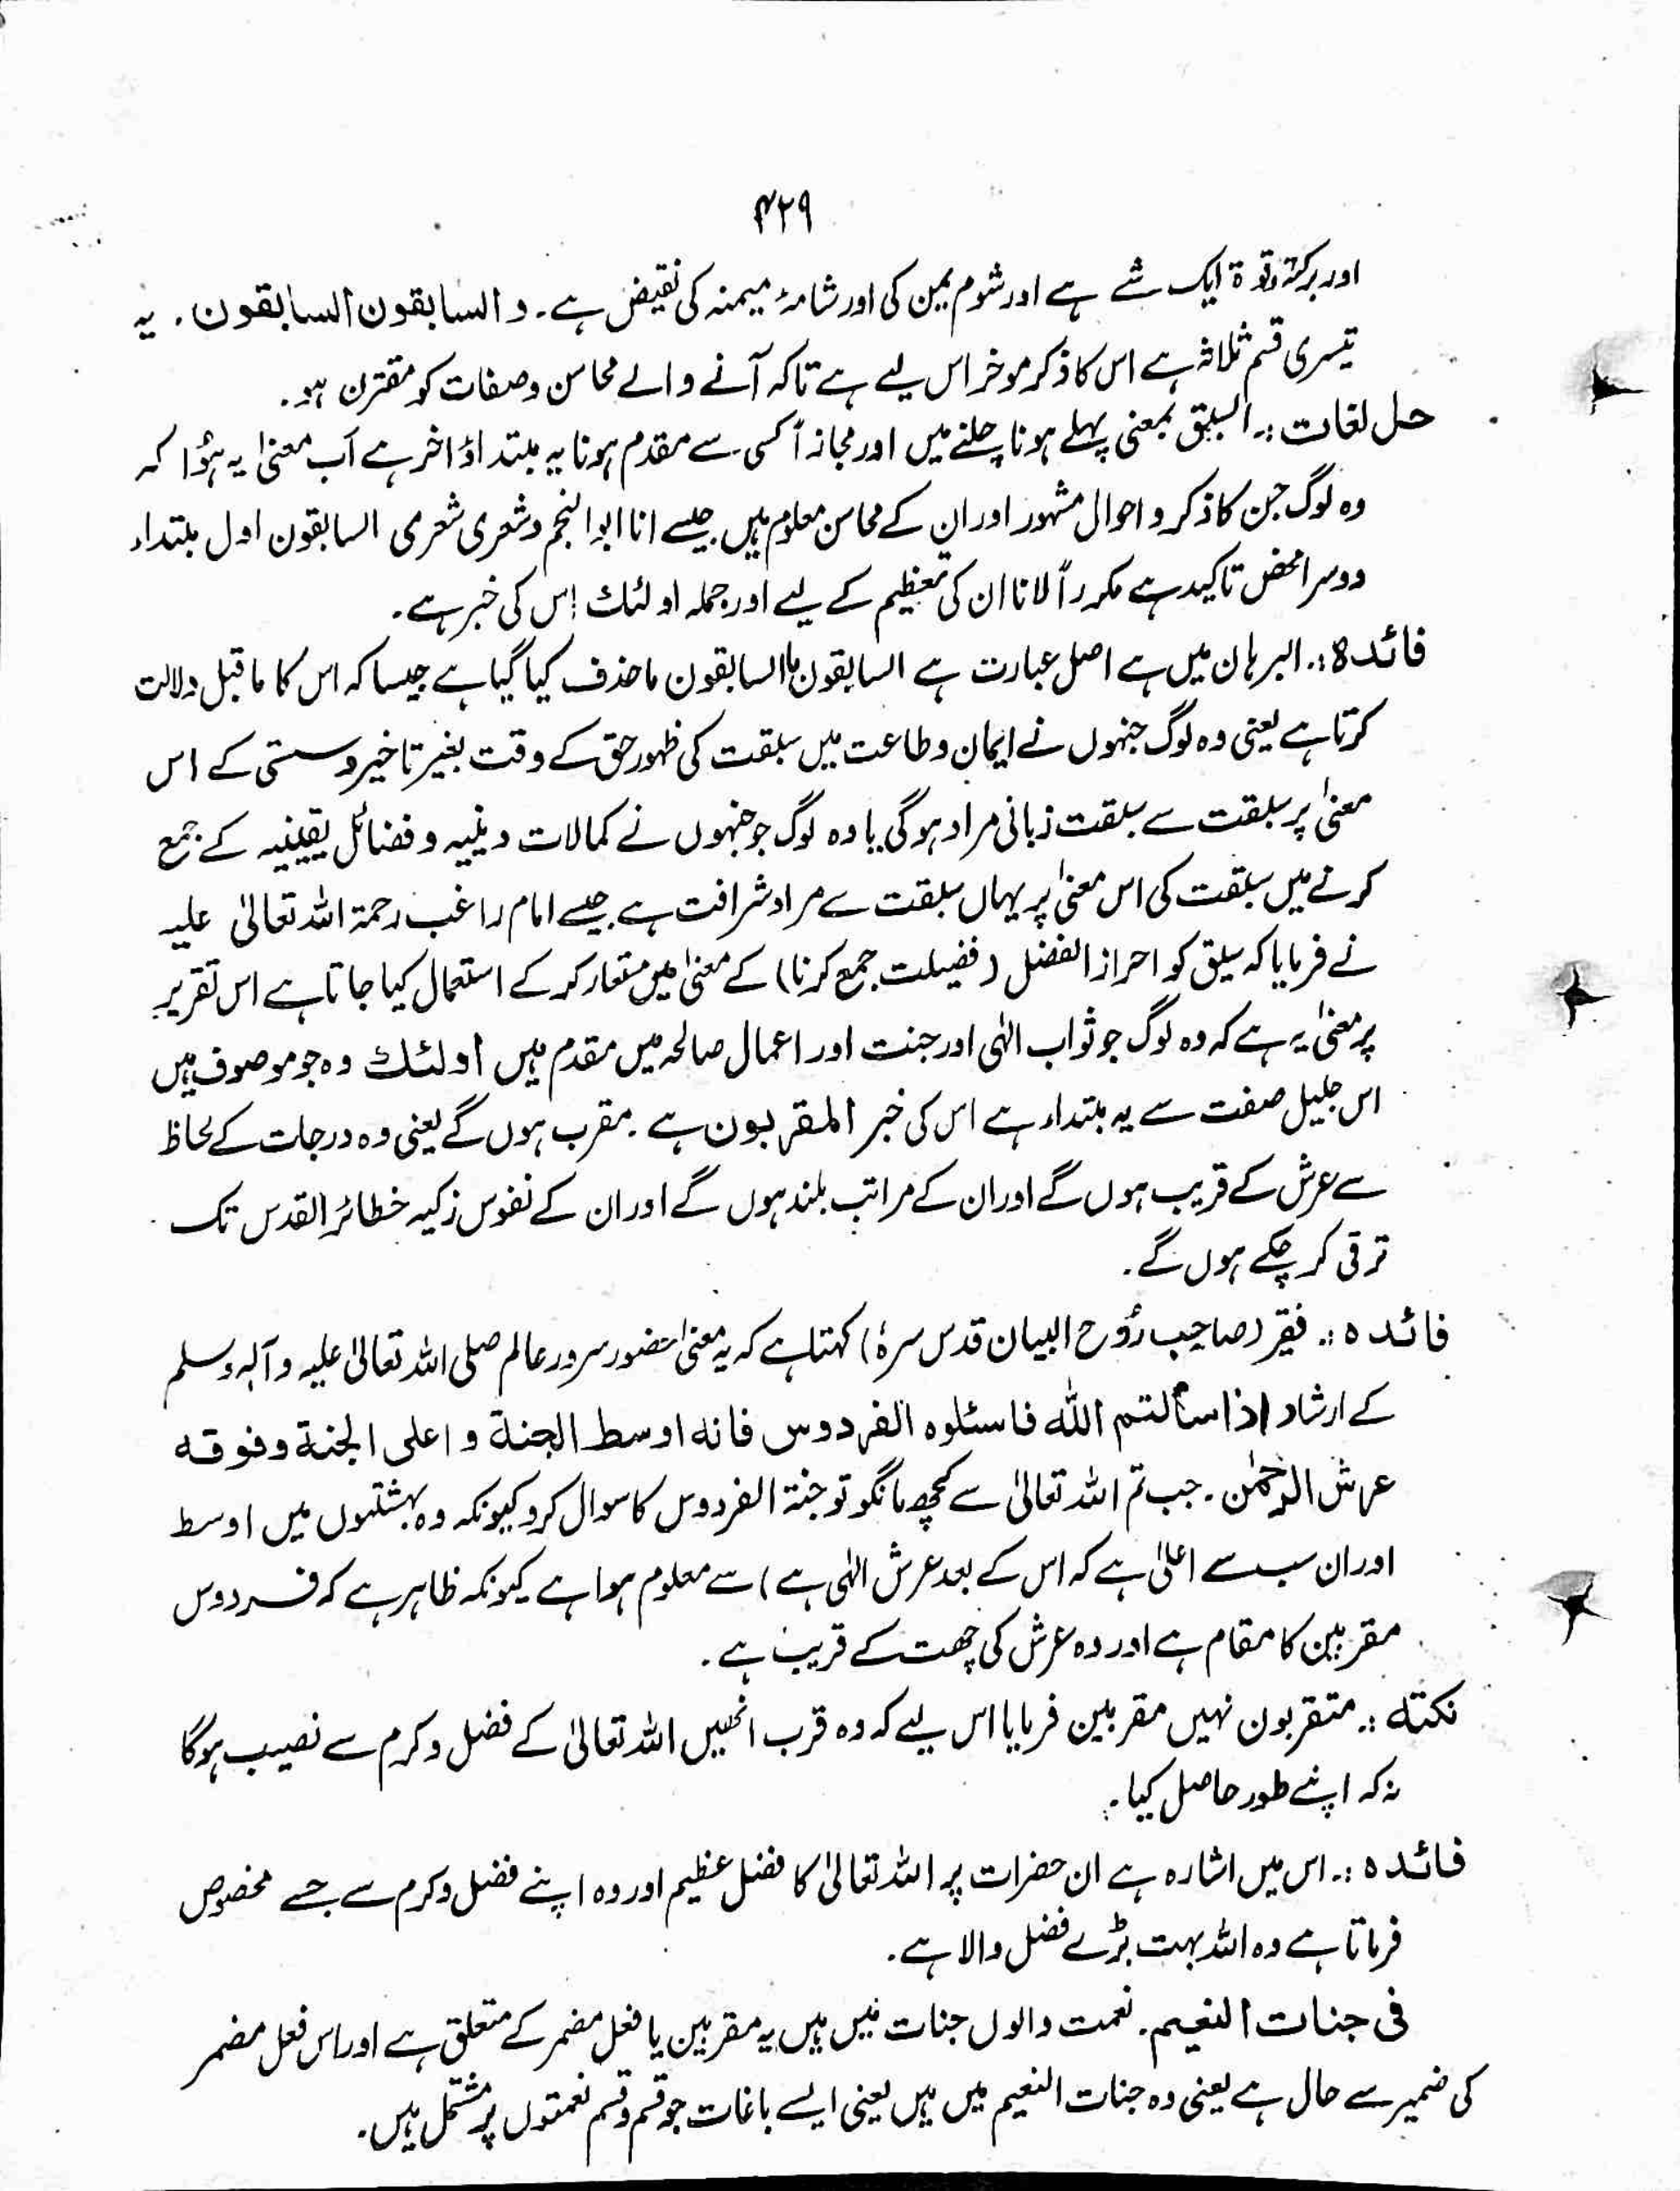 ۴۲۹
اور برکتہ وقوۃ ایک شے ہے اور شوم یمن کی اور شامۃ میمنہ کی نقیض ہے۔ والسابقون السابقون۔ یہ
تیسری قسم ثلاثہ ہے اس کا ذکر موخر اس لیے ہے تاکہ آنے والے محاسن وصفات کو مقترن ہو۔
حل لغات :۔ السبق بمعنی پہلے ہونا چلنے میں اور مجازاً کسی سے مقدم ہونا یہ مبتداؤ اخر ہے اَب معنیٰ یہ ہُوا کہ
وہ لوگ جن کا ذکر و احوال مشہور اور ان کے محاسن معلوم ہیں جیسے انا ابو النجم وشعری شعری السابقون اول مبتداء
دوسرا محض تاکید ہے مکرر اً لانا ان کی تعظیم کے لیے اور جملہ اولئك اِس کی خبر ہے۔
فائدہ :۔ البرہان میں ہے اصل عبارت ہے السابقون ما السابقون ما حذف کیا گیا ہے جیسا کہ اس کا ماقبل دلالت
کرتا ہے یعنی وہ لوگ جنہوں نے ایمان وطاعت میں سبقت کی ظہور حق کے وقت بغیر تاخیر وسستی کے اس
معنیٰ پر سبقت سے سبقت زبانی مراد ہوگی یا وہ لوگ جو جنہوں نے کمالات دینیہ و فضائل یقینیہ کے جمع
کرنے میں سبقت کی اس معنیٰ پر یہاں سبقت سے مراد شرافت ہے جیسے امام راغب رحمۃ اللہ تعالیٰ علیہ
نے فرمایا کہ سبق کو احراز الفضل (فضیلت جمع کرنا) کے معنیٰ میں مستعار کر کے استعمال کیا جاتا ہے اس تقریر
پر معنیٰ یہ ہے کہ وہ لوگ جو ثواب الٰہی اور جنت اور اعمال صالحہ میں مقدم ہیں اولئك وہ جو موصوف ہیں
اس جلیل صفت سے یہ مبتداء ہے اس کی خبر المقربون ہے۔ مقرب ہوں گے یعنی وہ درجات کے لحاظ
سے عرش کے قریب ہوں گے اور ان کے مراتب بلند ہوں گے اور ان کے نفوس زکیہ خطائر القدس تک
ترقی کر چکے ہوں گے۔
فائدہ :۔ فقیر (صاحب رُوح البیان قدس سرہٗ) کہتا ہے کہ یہ معنیٰ حضور سرور عالم صلی اللہ تعالیٰ علیہ وآلہ وسلم
کے ارشاد اذا سألتم اللہ فاسئلوہ الفردوس فانه اوسط الجنة و اعلی الجنة وفوقه
عرش الرحمٰن۔ جب تم اللہ تعالیٰ سے کچھ مانگو تو جنۃ الفردوس کا سوال کرو کیونکہ وہ بہشتوں میں اوسط
اور ان سب سے اعلیٰ ہے کہ اس کے بعد عرش الٰہی ہے) سے معلوم ہوا ہے کیونکہ ظاہر ہے کہ فردوس
مقربین کا مقام ہے اور وہ عرش کی چھت کے قریب ہے۔
نکتہ :۔ متقربون نہیں مقربین فرمایا اس لیے کہ وہ قرب انھیں اللہ تعالیٰ کے فضل و کرم سے نصیب ہوگا
نہ کہ اپنے طور حاصل کیا۔
فائدہ :۔ اس میں اشارہ ہے ان حضرات پر اللہ تعالیٰ کا فضل عظیم اور وہ اپنے فضل وکرم سے جسے مخصوص
فرماتا ہے وہ اللہ بہت بڑے فضل والا ہے۔
فی جنات النعیم۔ نعمت والوں جنات میں ہیں یہ مقربین یا فعل مضمر کے متعلق ہے اور اس فعل مضمر
کی ضمیر سے حال ہے یعنی وہ جنات النعیم میں ہیں یعنی ایسے باغات جو قسم وقسم نعمتوں پر مشتمل ہیں۔